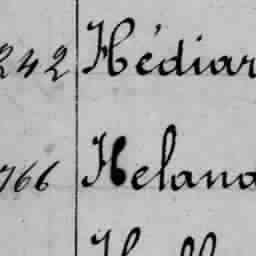 242 Hédiar
766 Heland